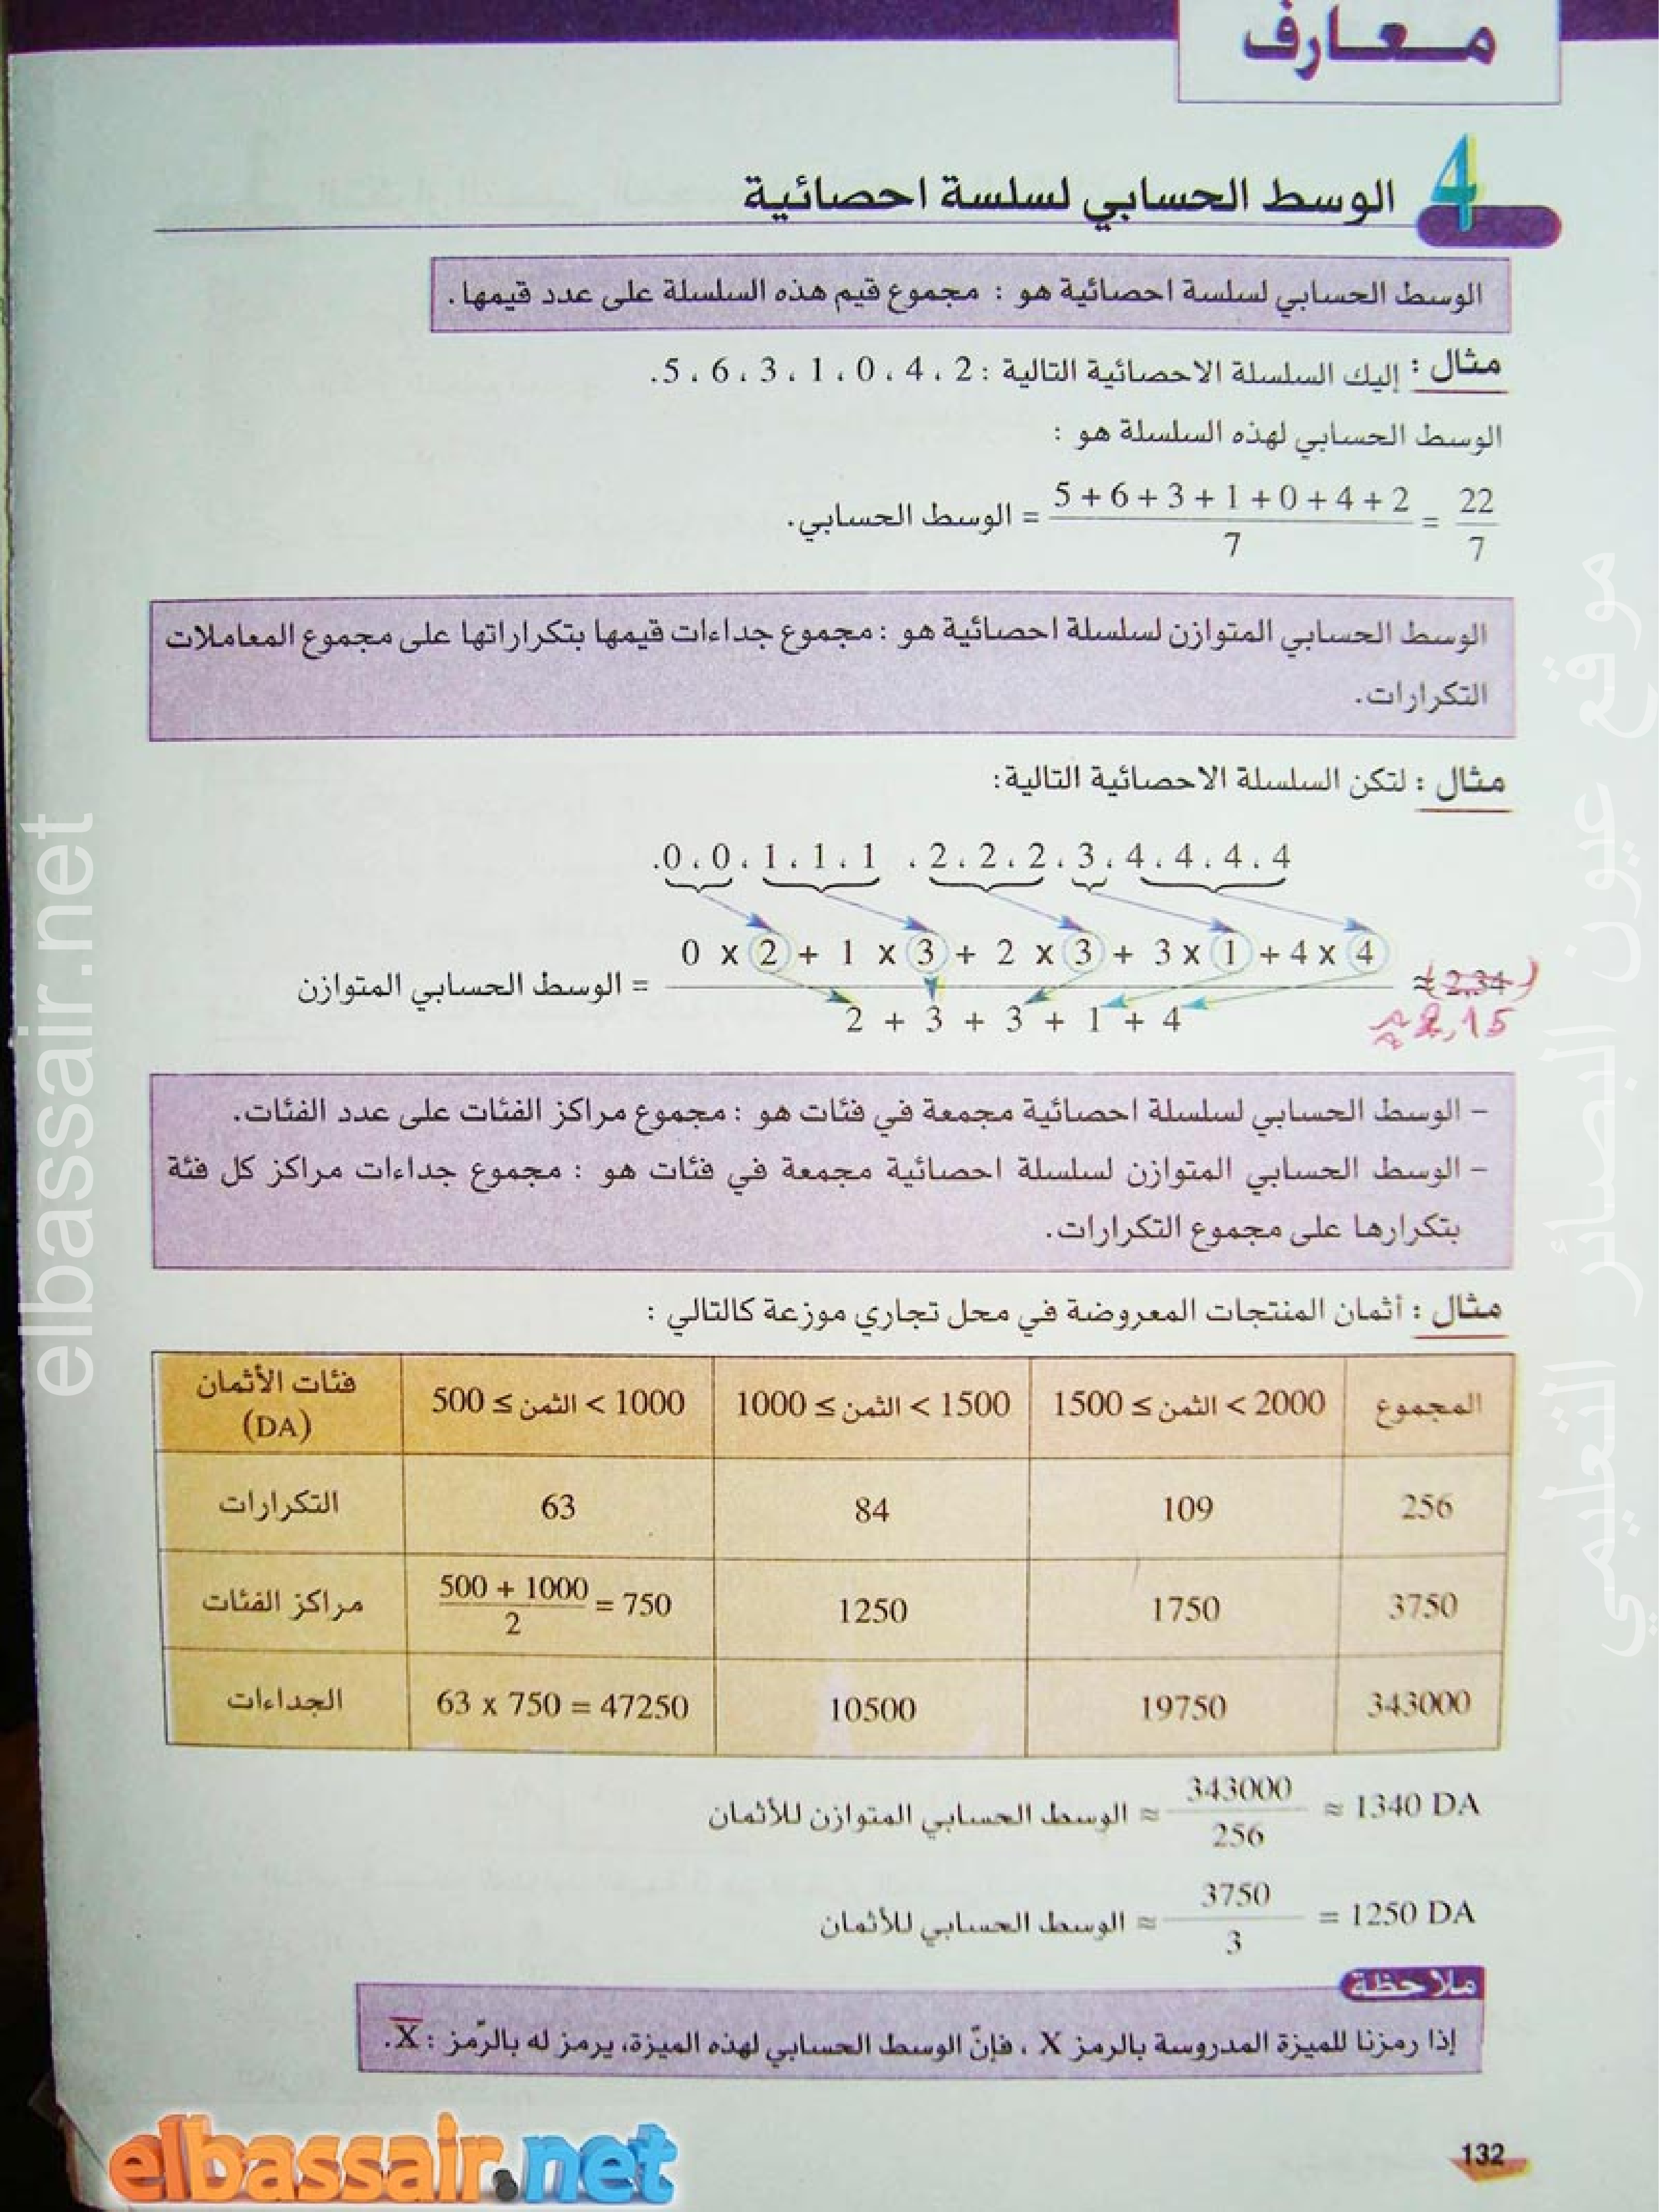 معارف
4 الوسط الحسابي لسلسة احصائية
الوسط الحسابي لسلسة احصائية هو : مجموع قيم هذه السلسلة على عدد قيمها .
مثال : إليك السلسلة الاحصائية التالية : 2 ، 4 ، 0 ، 1 ، 3 ، 6 ، 5.
الوسط الحسابي لهذه السلسلة هو :
الوسط الحسابي. = (5 + 6 + 3 + 1 + 0 + 4 + 2)/7 = 22/7
الوسط الحسابي المتوازن لسلسلة احصائية هو : مجموع جداءات قيمها بتكراراتها على مجموع المعاملات
التكرارات.
مثال : لتكن السلسلة الاحصائية التالية:
.0 ، 0 ، 1 ، 1 ، 1 ، 2 ، 2 ، 2 ، 3 ، 4 ، 4 ، 4 ، 4
0 x 2 + 1 x 3 + 2 x 3 + 3 x 1 + 4 x 4
الوسط الحسابي المتوازن = ≈ (2.34)
2 + 3 + 3 + 1 + 4 ≈ 2,15
– الوسط الحسابي لسلسلة احصائية مجمعة في فئات هو : مجموع مراكز الفئات على عدد الفئات.
– الوسط الحسابي المتوازن لسلسلة احصائية مجمعة في فئات هو : مجموع جداءات مراكز كل فئة
بتكرارها على مجموع التكرارات.
مثال : أثمان المنتجات المعروضة في محل تجاري موزعة كالتالي :
فئات الأثمان (DA) 500 ≤ الثمن < 1000 1000 ≤ الثمن < 1500 1500 ≤ الثمن < 2000 المجموع
التكرارات 63 84 109 256
مراكز الفئات (500 + 1000)/2 = 750 1250 1750 3750
الجداءات 63 x 750 = 47250 10500 19750 343000
الوسط الحسابي المتوازن للأثمان ≈ 343000/256 ≈ 1340 DA
الوسط الحسابي للأثمان ≈ 3750/3 = 1250 DA
ملاحظة
إذا رمزنا للميزة المدروسة بالرمز X ، فإنّ الوسط الحسابي لهذه الميزة، يرمز له بالرّمز : X̅.
132
elbassair.net
elbassair.net
موقع عيون البصائر التعليمي